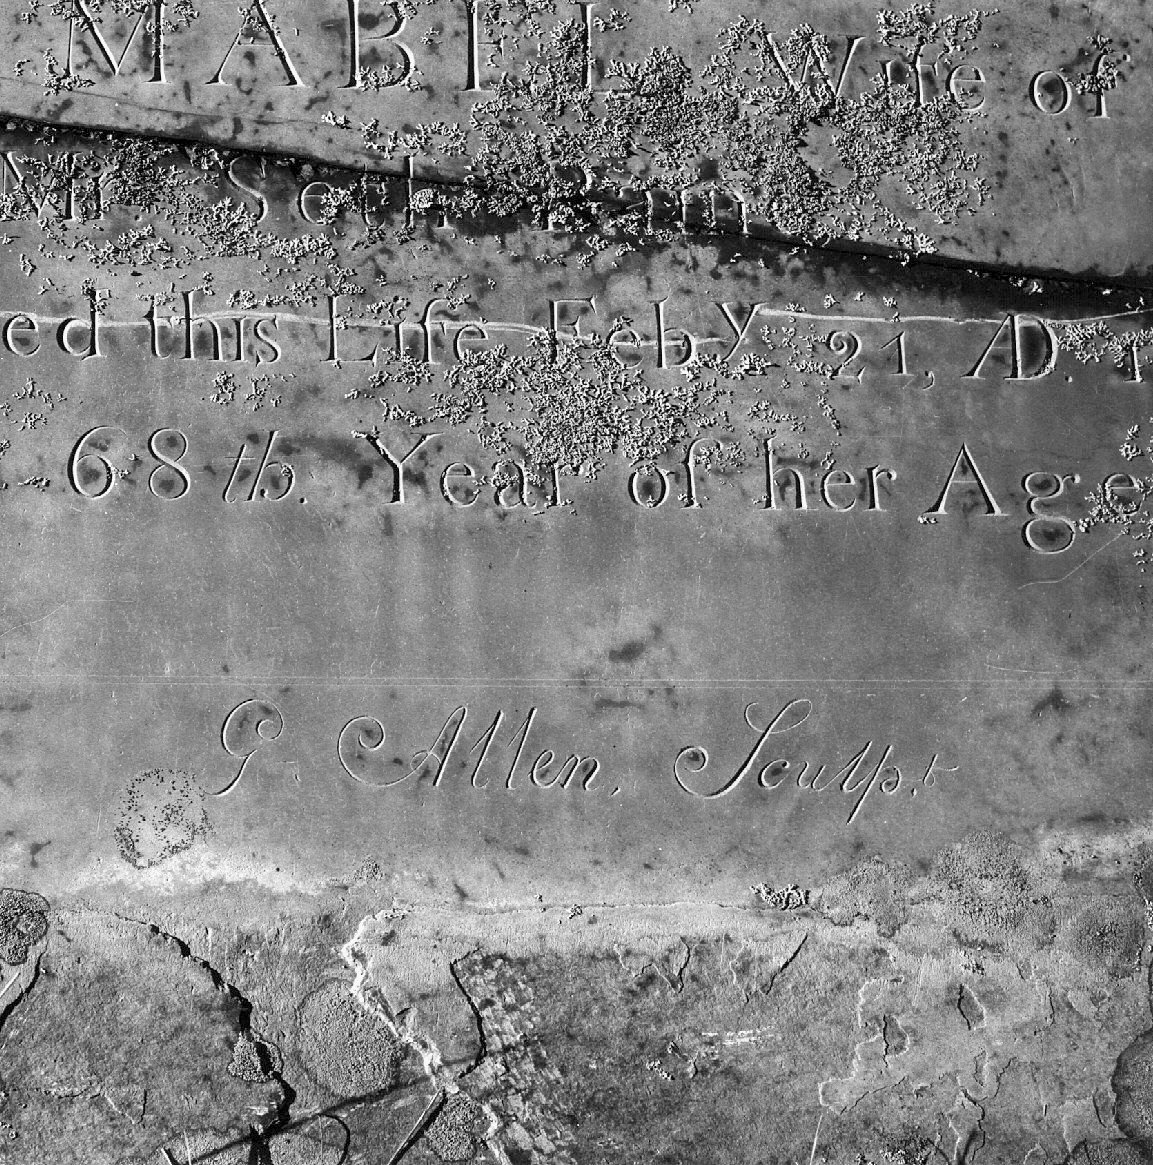 MABEL Wife of
Mr Seth
ed this Life Feby 21, AD. 1
68th. Year of her Age
G Allen, Sculpt